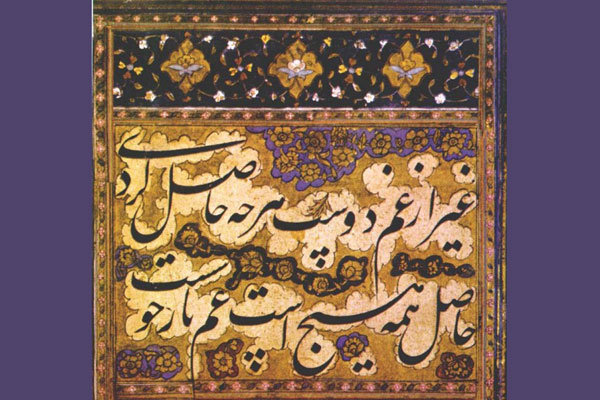 غیر از غم دوست هرچه حاصل کردی
حاصل همه هیچ است غم یار خوشست